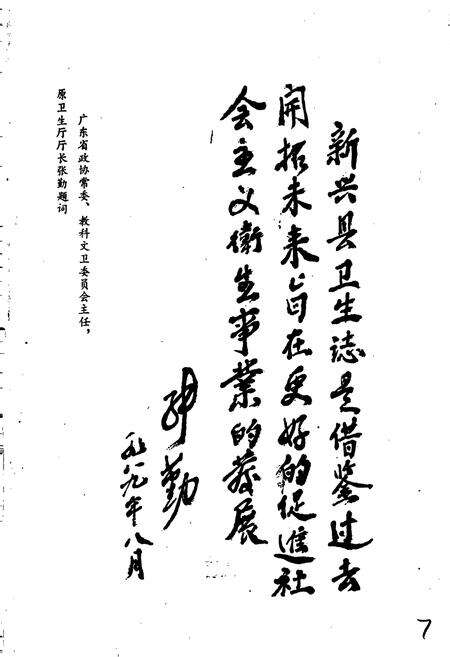 新兴县卫生誌是借鉴过去
開拓未来旨在更好的促進社
会主义衛生事業的发展
张勤
一九八九年八月
广东省政协常委、教科文卫委员会主任，
原卫生厅厅长张勤题词
7